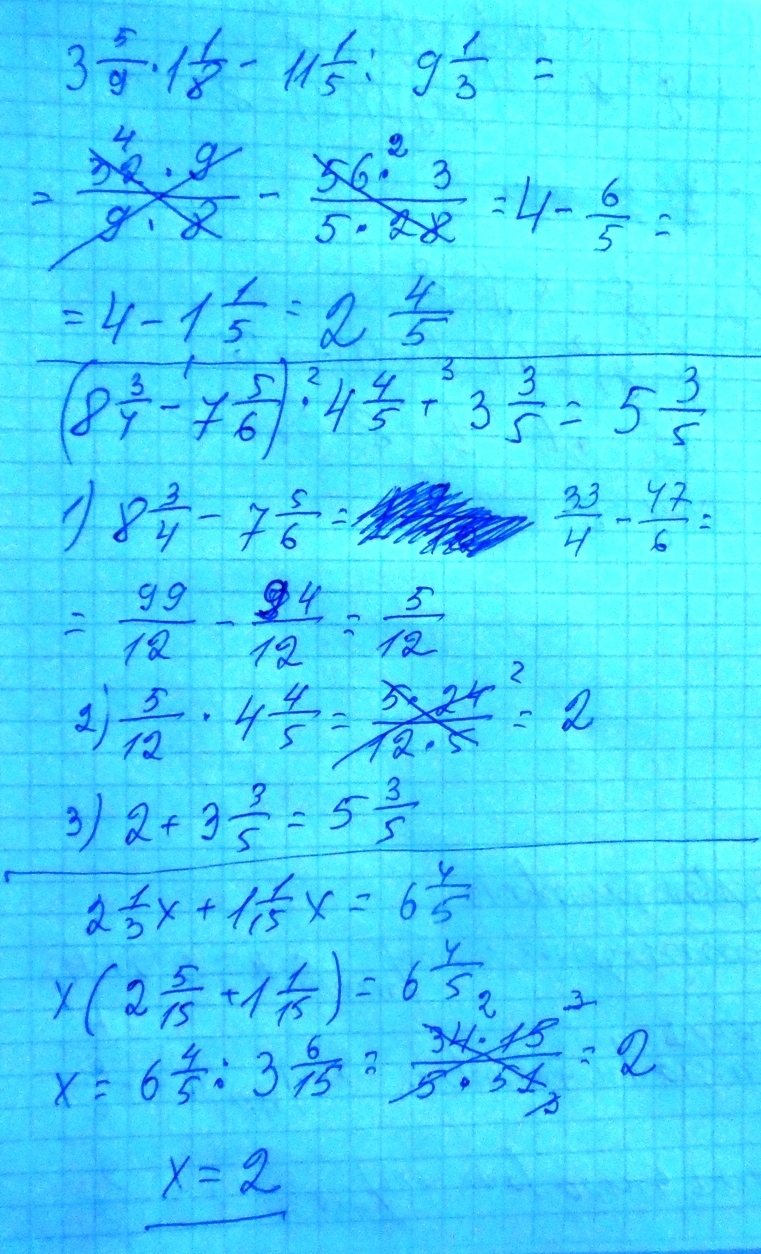 3 5/9 · 1 1/8 - 11 1/5 : 9 1/3 =
= 32 · 9 / 9 · 8 4 - 56 · 3 / 5 · 28 2 = 4 - 6/5 =
= 4 - 1 1/5 = 2 4/5
(8 3/4 - 7 5/6) · 4 4/5 + 3 3/5 = 5 3/5 1 2 3
1) 8 3/4 - 7 5/6 = 33/4 - 47/6 =
= 99/12 - 94/12 = 5/12
2) 5/12 · 4 4/5 = 5 · 24 / 12 · 5 2 = 2
3) 2 + 3 3/5 = 5 3/5
2 1/3 x + 1 1/15 x = 6 4/5
x (2 5/15 + 1 1/15) = 6 4/5
x = 6 4/5 : 3 6/15 = 34 · 15 / 5 · 51 2 3 3 = 2
x = 2